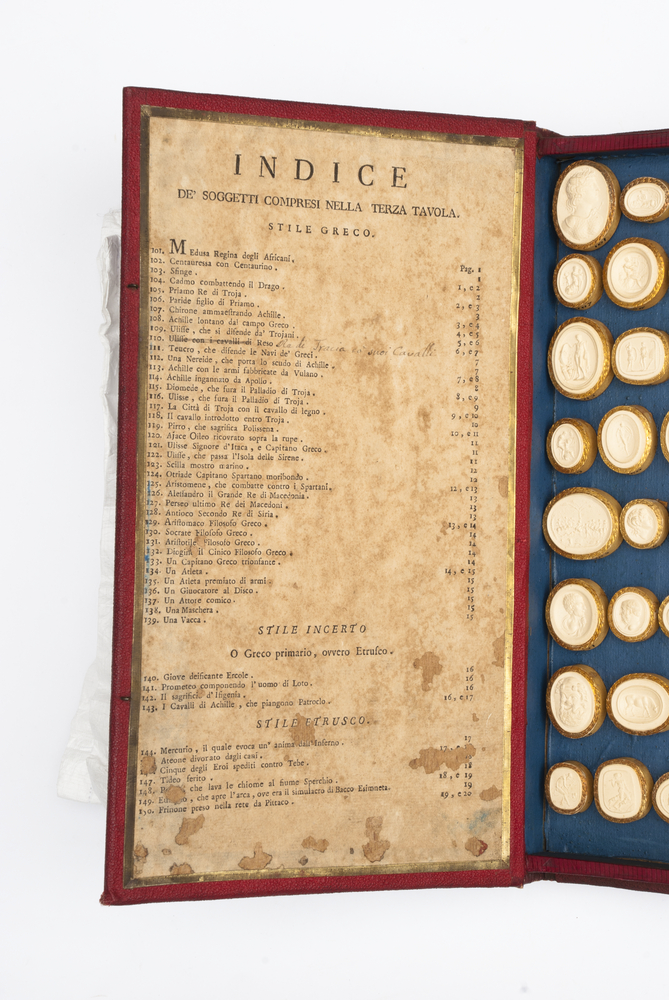 INDICE
DE' SOGGETTI COMPRESI NELLA TERZA TAVOLA.
STILE GRECO.
101. Medusa Regina degli Africani. Pag. 1
102. Centauressa con Centaurino. 1
103. Sfinge. 1, e 2
104. Cadmo combattendo il Drago. 2
105. Priamo Re di Troja. 2, e 3
106. Paride figlio di Priamo. 3
107. Chirone ammaestrando Achille. 3, e 4
108. Achille lontano dal campo Greco. 4, e 5
109. Ulisse, che si difende da' Trojani. 5, e 6
110. Ulisse con i cavalli di Reso Re di Tracia e suoi Cavalli 6, e 7
111. Teucro, che difende le Navi de' Greci. 7
112. Una Nereide, che porta lo scudo di Achille. 7
113. Achille con le armi fabbricate da Vulano. 7, e 8
114. Achille ingannato da Apollo. 8
115. Diomede, che fura il Palladio di Troja. 8, e 9
116. Ulisse, che fura il Palladio di Troja. 9
117. La Città di Troja con il cavallo di legno. 9, e 10
118. Il cavallo introdotto entro Troja. 10
119. Pirro, che sagrifica Polissena. 10, e 11
120. Ajace Oileo ricovrato sopra la rupe. 11
121. Ulisse Signore d'Itaca, e Capitano Greco. 11
122. Ulisse, che passa l'Isola delle Sirene. 11
123. Scilla mostro marino. 12
124. Otriade Capitano Spartano moribondo. 12
125. Aristomene, che combatte contro i Spartani. 12, e 13
126. Alessandro il Grande Re di Macedonia. 13
127. Perseo ultimo Re dei Macedoni. 13
128. Antioco Secondo Re di Siria. 13
129. Aristomaco Filosofo Greco. 13, e 14
130. Socrate Filosofo Greco. 14
131. Aristotile Filosofo Greco. 14
132. Diogine il Cinico Filosofo Greco. 14
133. Un Capitano Greco trionfante. 14
134. Un Atleta. 14, e 15
135. Un Atleta premiato di armi. 15
136. Un Ginocatore al Disco. 15
137. Un Attore comico. 15
138. Una Maschera. 15
139. Una Vacca. 15
STILE INCERTO
O Greco primario, ovvero Etrusco.
140. Giove deificante Ercole. 16
141. Prometeo componendo l'uomo di Loto. 16
142. Il sagrifici d'Ifigenia. 16
143. I Cavalli di Achille, che piangono Patroclo. 16, e 17
STILE ETRUSCO.
144. Mercurio, il quale evoca un' anima dall'Inferno. 17
Ateone divorato dagli cani. 17, e
Cinque degli Eroi spediti contro Tebe. 18
147. Tideo ferito. 18, e 19
148. che lava le chiome al fiume Sperchio. 19
149. che apre l'arca, ove era il simulacro di Bacco Esimneta. 19, e 20
150. Frinone preso nella rete da Pittaco.